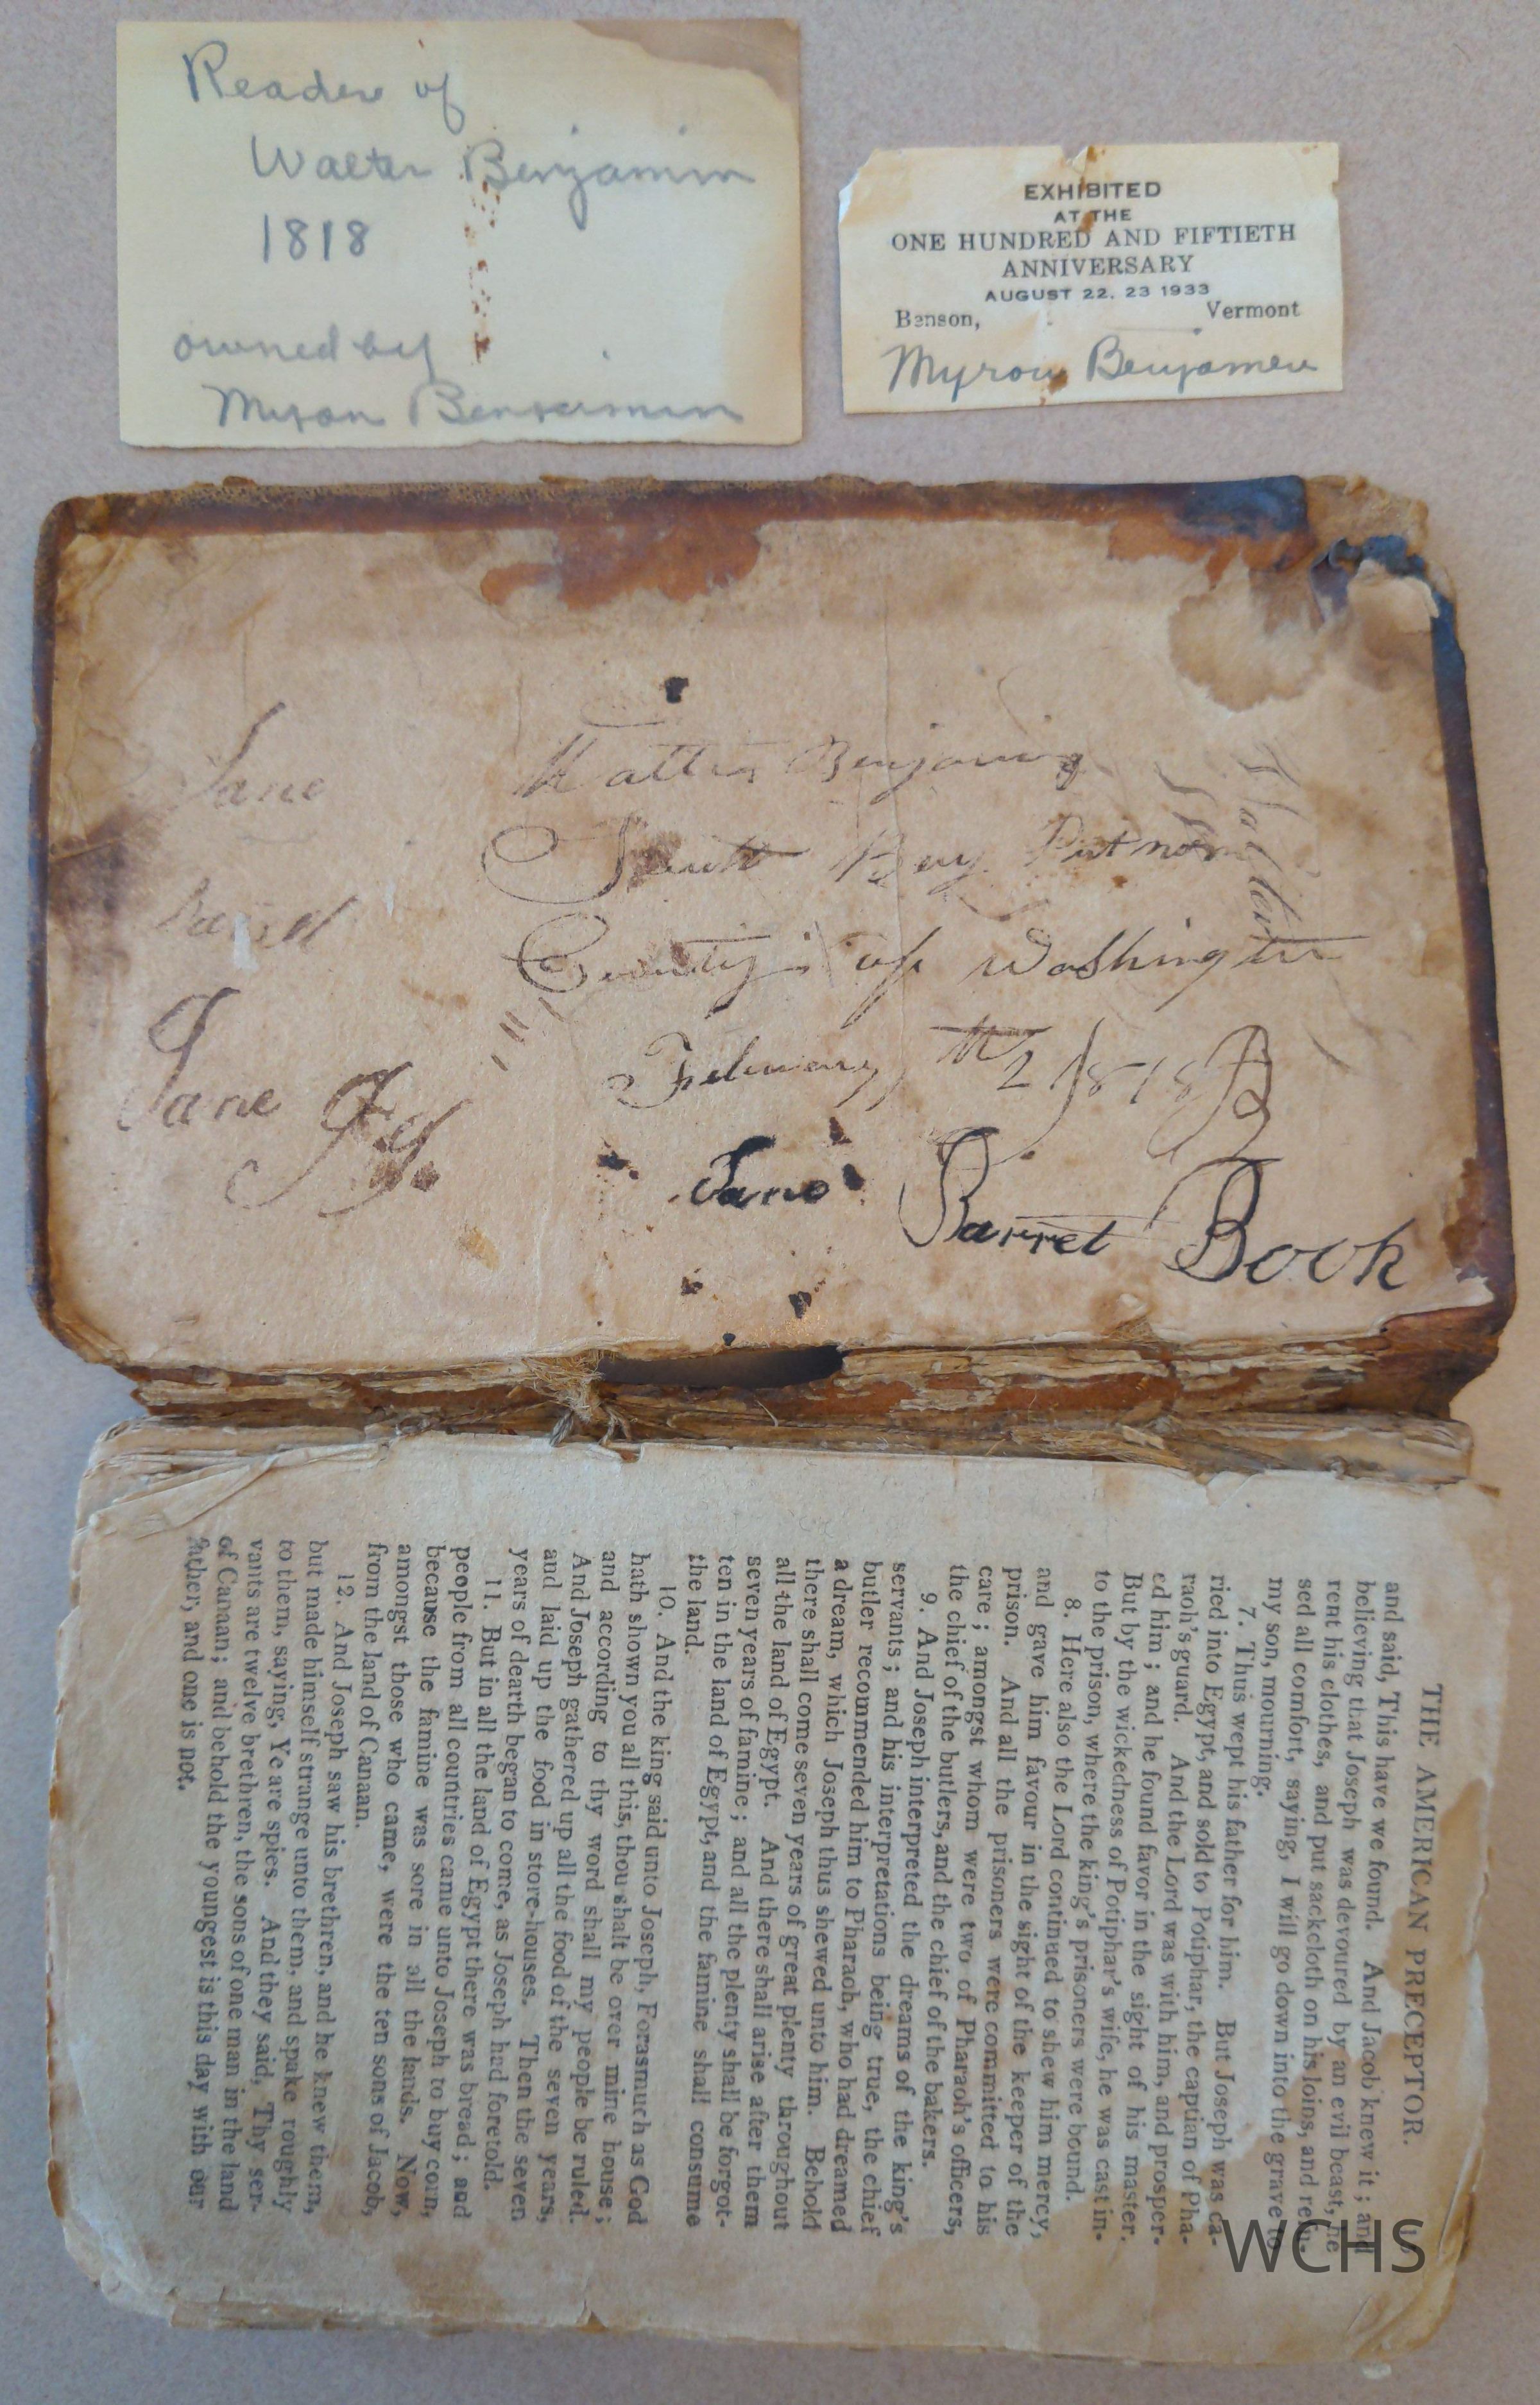 Reader of
Walter Benjamin
1818
owned by
Myron Benjamin
EXHIBITED
AT THE
ONE HUNDRED AND FIFTIETH
ANNIVERSARY
AUGUST 22, 23 1933
Benson, Vermont
Myron Benjamen
Jane
Jane
Walter Benjamin
South Bay Putnam
County of Washington
February 1818
Jane Barret Book
THE AMERICAN PRECEPTOR.
and said, This have we found. And Jacob knew it; and
believing that Joseph was devoured by an evil beast, he
rent his clothes, and put sackcloth on his loins, and refu-
sed all comfort, saying, I will go down into the grave to
my son, mourning.
7. Thus wept his father for him. But Joseph was ca-
ried into Egypt, and sold to Potiphar, the captian of Pha-
raoh's guard. And the Lord was with him, and prosper-
ed him; and he found favor in the sight of his master.
But by the wickedness of Potiphar's wife, he was cast in-
to the prison, where the king's prisoners were bound.
8. Here also the Lord continued to shew him mercy,
and gave him favour in the sight of the keeper of the
prison. And all the prisoners were committed to his
care; amongst whom were two of Pharaoh's officers,
the chief of the butlers, and the chief of the bakers.
9. And Joseph interpreted the dreams of the king's
servants; and his interpretations being true, the chief
butler recommended him to Pharaoh, who had dreamed
a dream, which Joseph thus shewed unto him. Behold
there shall come seven years of great plenty throughout
all the land of Egypt. And there shall arise after them
seven years of famine; and all the plenty shall be forgot-
ten in the land of Egypt, and the famine shall consume
the land.
10. And the king said unto Joseph, Forasmuch as God
hath shown you all this, thou shalt be over mine house;
and according to thy word shall my people be ruled.
And Joseph gathered up all the food of the seven years,
and laid up the food in store-houses. Then the seven
years of dearth began to come, as Joseph had foretold.
11. But in all the land of Egypt there was bread; and
people from all countries came unto Joseph to buy corn,
because the famine was sore in all the lands. Now,
amongst those who came, were the ten sons of Jacob,
from the land of Canaan.
12. And Joseph saw his brethren, and he knew them,
but made himself strange unto them, and spake roughly
to them, saying, Ye are spies. And they said, Thy ser-
vants are twelve brethren, the sons of one man in the land
of Canaan; and behold the youngest is this day with our
father, and one is not.
WCHS